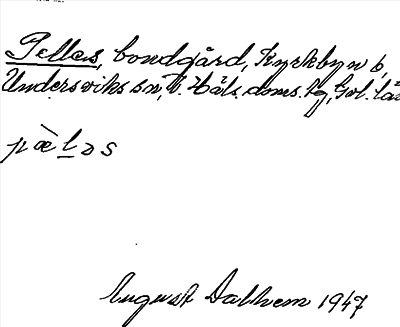 Pellas, bondgård, Kyrkbyn 6,
Undersviks sn, V. Häls. doms. tg, Gvl. lä
pæ̀l̲ɔs
August Dalhem 1947